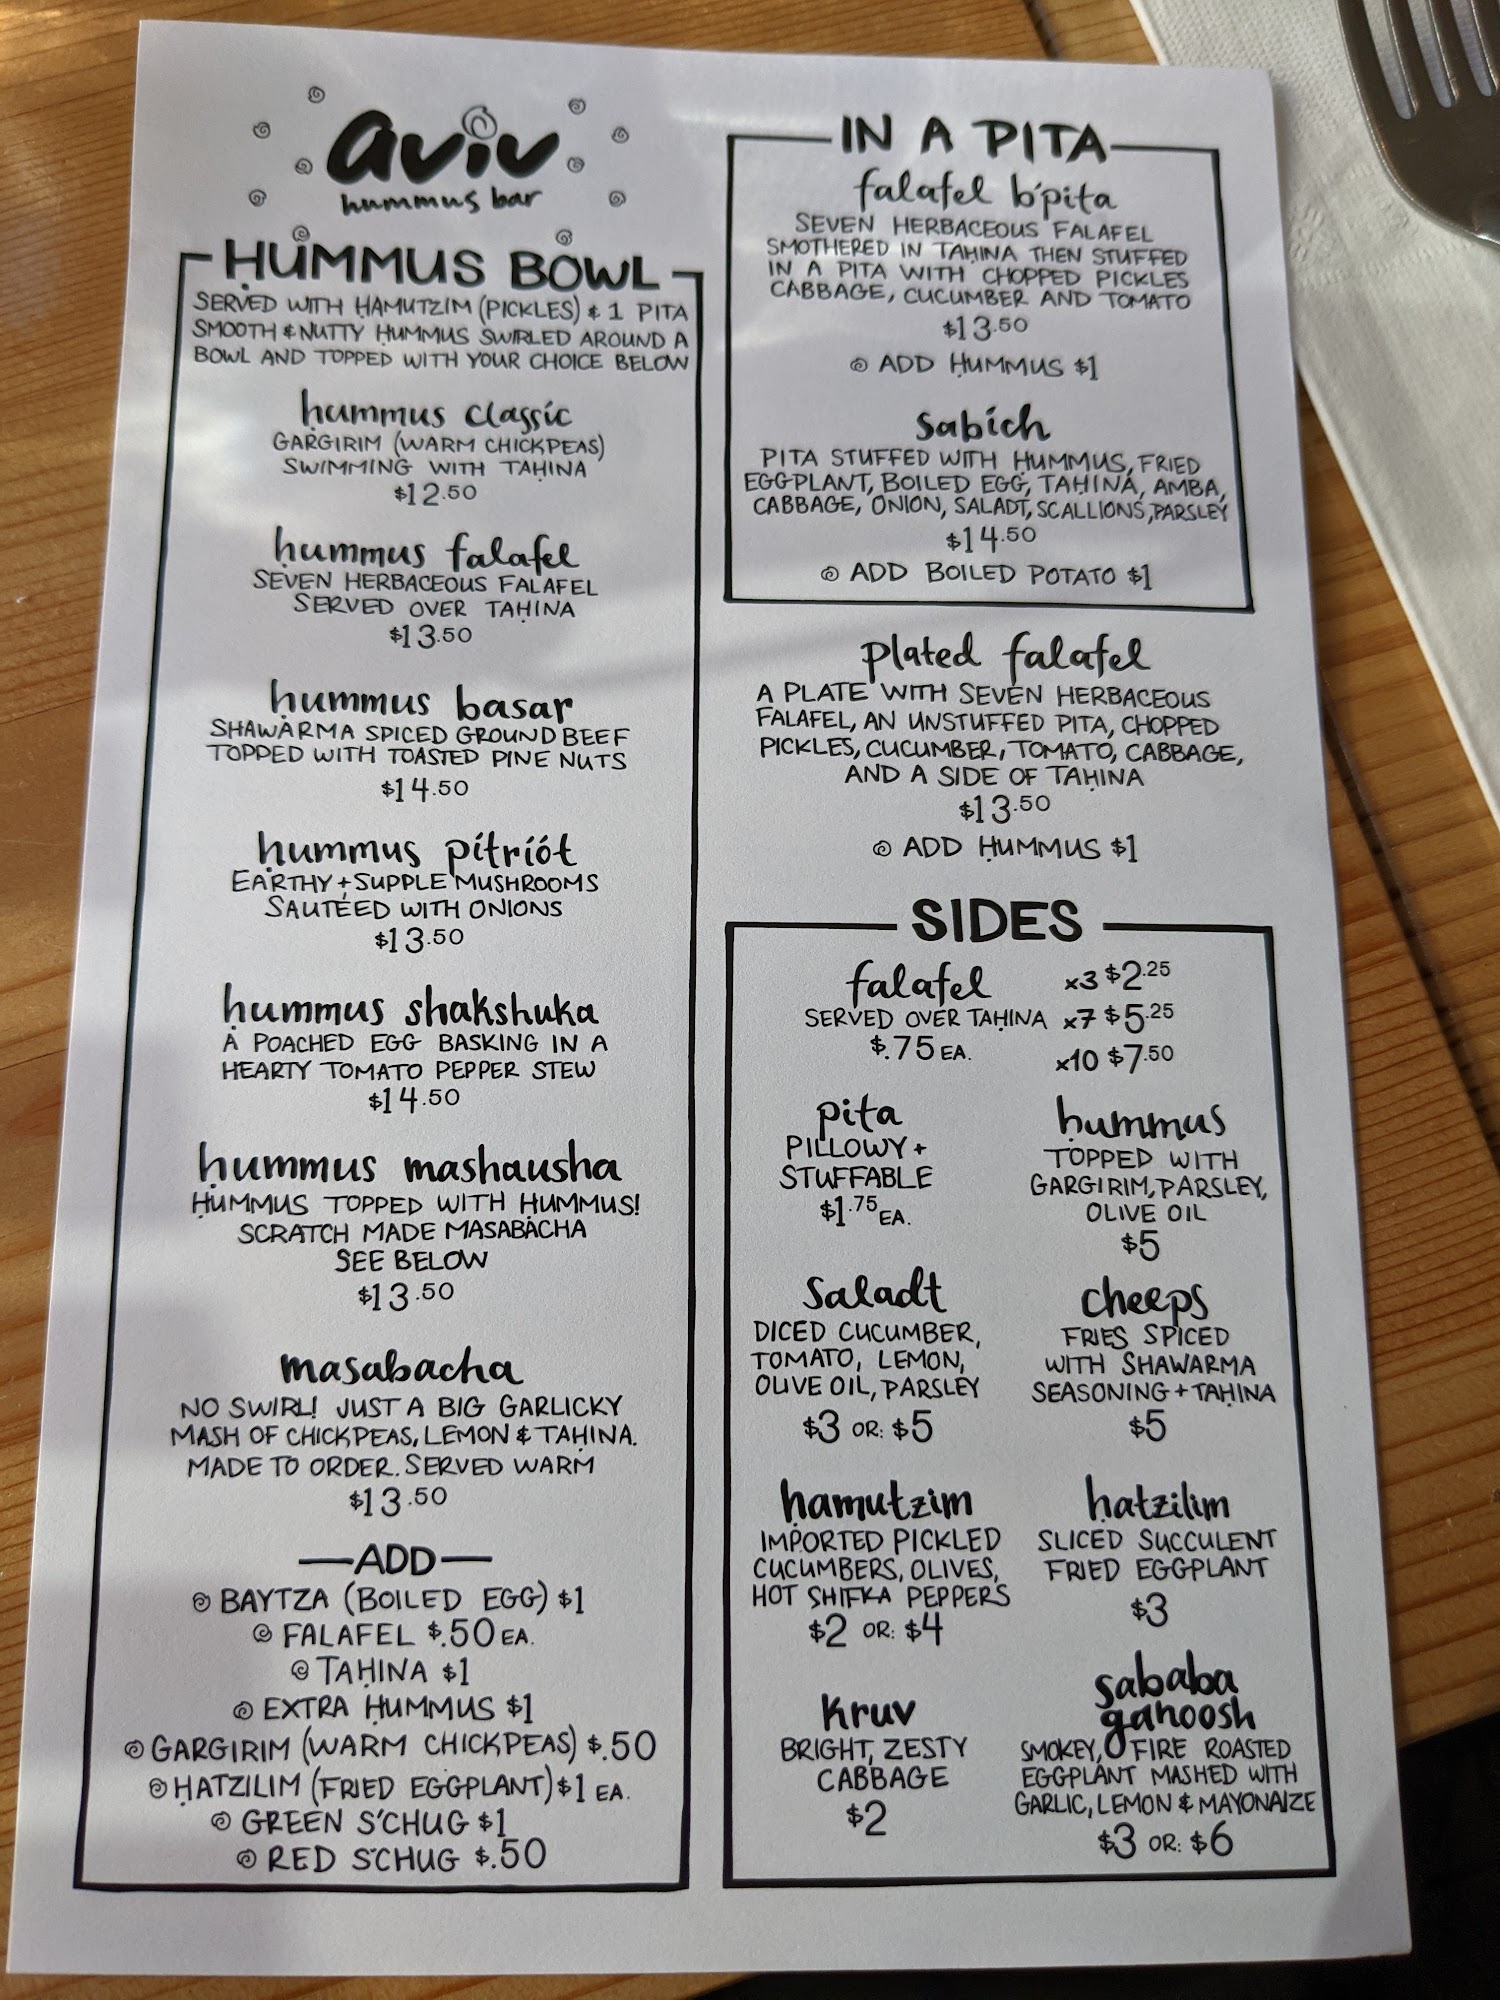 aviv
hummus bar
ḤUMMUS BOWL
SERVED WITH ḤAMUTZIM (PICKLES) & 1 PITA
SMOOTH & NUTTY ḤUMMUS SWIRLED AROUND A
BOWL AND TOPPED WITH YOUR CHOICE BELOW
ḥummus classic
GARGIRIM (WARM CHICKPEAS)
SWIMMING WITH TAḤINA
$12.50
ḥummus falafel
SEVEN HERBACEOUS FALAFEL
SERVED OVER TAḤINA
$13.50
ḥummus basar
SHAWARMA SPICED GROUND BEEF
TOPPED WITH TOASTED PINE NUTS
$14.50
ḥummus pitriót
EARTHY + SUPPLE MUSHROOMS
SAUTÉED WITH ONIONS
$13.50
ḥummus shakshuka
A POACHED EGG BASKING IN A
HEARTY TOMATO PEPPER STEW
$14.50
ḥummus mashausha
ḤUMMUS TOPPED WITH ḤUMMUS!
SCRATCH MADE MASABACHA
SEE BELOW
$13.50
masabacha
NO SWIRL! JUST A BIG GARLICKY
MASH OF CHICKPEAS, LEMON & TAḤINA.
MADE TO ORDER. SERVED WARM
$13.50
—ADD—
BAYTZA (BOILED EGG) $1
FALAFEL $.50 EA.
TAḤINA $1
EXTRA ḤUMMUS $1
GARGIRIM (WARM CHICKPEAS) $.50
ḤATZILIM (FRIED EGGPLANT) $1 EA.
GREEN S'CHUG $1
RED S'CHUG $.50
IN A PITA
falafel b'pita
SEVEN HERBACEOUS FALAFEL
SMOTHERED IN TAḤINA THEN STUFFED
IN A PITA WITH CHOPPED PICKLES
CABBAGE, CUCUMBER AND TOMATO
$13.50
ADD ḤUMMUS $1
sabich
PITA STUFFED WITH ḤUMMUS, FRIED
EGGPLANT, BOILED EGG, TAḤINA, AMBA,
CABBAGE, ONION, SALADT, SCALLIONS, PARSLEY
$14.50
ADD BOILED POTATO $1
plated falafel
A PLATE WITH SEVEN HERBACEOUS
FALAFEL, AN UNSTUFFED PITA, CHOPPED
PICKLES, CUCUMBER, TOMATO, CABBAGE,
AND A SIDE OF TAḤINA
$13.50
ADD ḤUMMUS $1
SIDES
falafel x3 $2.25
SERVED OVER TAḤINA x7 $5.25
$.75 EA.
x10 $7.50
pita
PILLOWY +
STUFFABLE
$1.75 EA.
ḥummus
TOPPED WITH
GARGIRIM, PARSLEY,
OLIVE OIL
$5
saladt
DICED CUCUMBER,
TOMATO, LEMON,
OLIVE OIL, PARSLEY
$3 OR: $5
cheeps
FRIES SPICED
WITH SHAWARMA
SEASONING + TAḤINA
$5
ḥamutzim
IMPORTED PICKLED
CUCUMBERS, OLIVES,
HOT SHIFKA PEPPERS
$2 OR: $4
ḥatzilim
SLICED SUCCULENT
FRIED EGGPLANT
$3
kruv
BRIGHT, ZESTY
CABBAGE
$2
sababa
ganoosh
SMOKEY, FIRE ROASTED
EGGPLANT MASHED WITH
GARLIC, LEMON & MAYONAIZE
$3 OR: $6